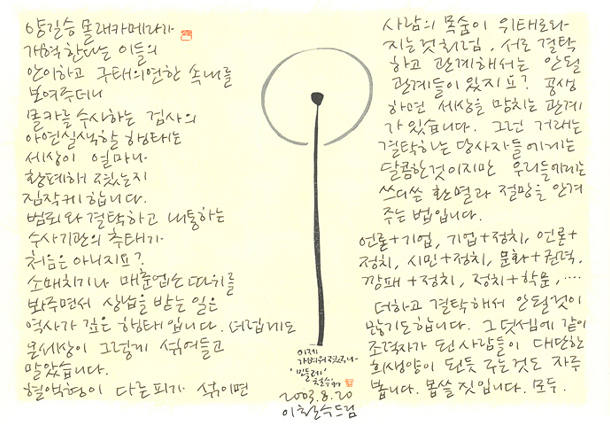 양길승 몰래카메라가
개혁한다는 이들의
안이하고 구태의연한 속내를
보여주더니
몰카를 수사하는 검사의
아연실색할 행태는
세상이 얼마나
황폐해 졌는지
짐작케 합니다.
범죄와 결탁하고 내통하는
수사기관의 추태가
처음은 아니지요?
소매치기나 매춘업소 따위를
봐주면서 상납을 받는 일은
역사가 깊은 행태입니다. 더럽게도
온세상이 그렇게 섞여들고
말았습니다.
혈액형이 다른피가 섞이면
사람의 목숨이 위태로와
지는것처럼, 서로 결탁
하고 관계해서는 안될
관계들이 있지요? 공생
하면 세상을 망치는 관계
가 있습니다. 그런 거래는
결탁하는 당사자들에게는
달콤한것이지만 우리들에게는
쓰디쓴 환멸과 절망을 안겨
주는 법입니다.
언론+기업, 기업+정치, 언론+
정치, 시민+정치, 문화+권력,
깡패+정치, 정치+학문, ....
더하고 결탁해서 안될것이
많기도합니다. 그 덧셈에 같이
조력자가 된사람들이 대단한
희생양이 된듯 구는것도 자주
봅니다. 몹쓸 짓입니다. 모두.
이제
'민들레'
철수
2003.8.20
이철수드림